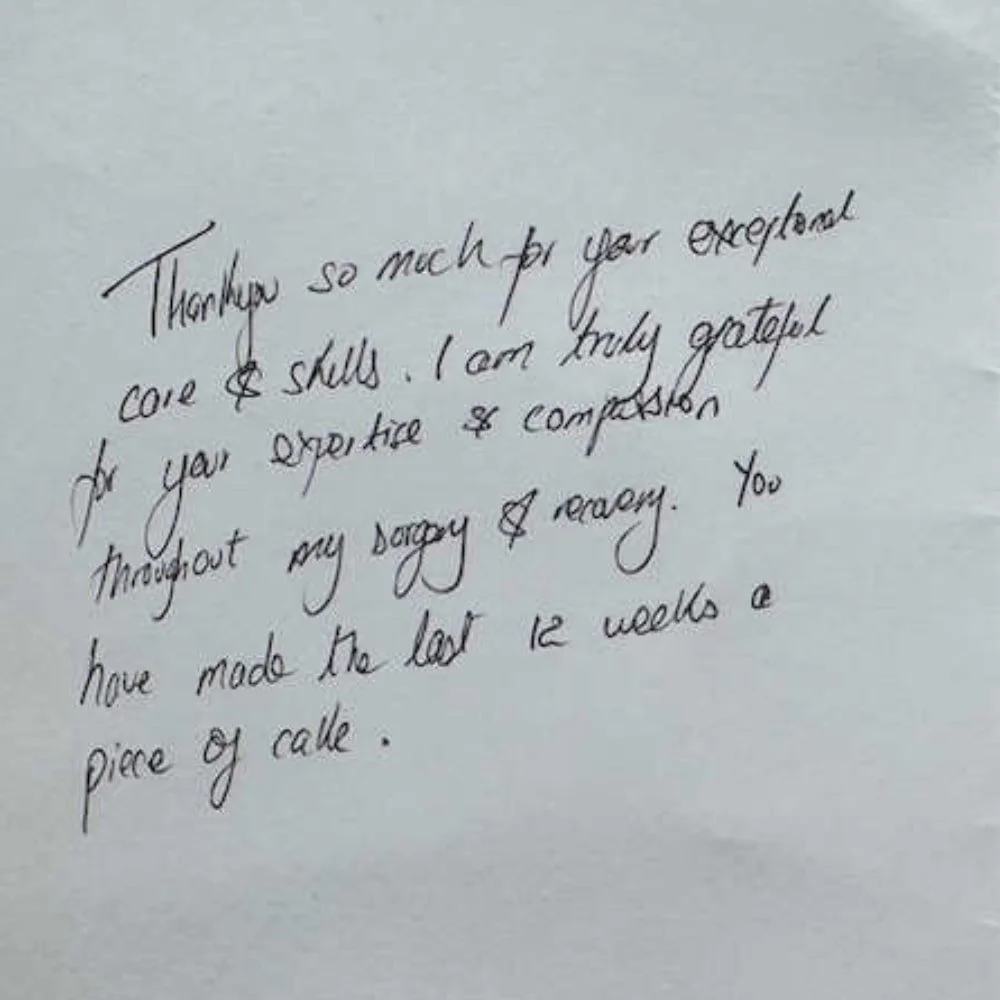 Thankyou so much for your exceptional
care & skills. I am truly grateful
for your expertise & compassion
throughout my surgery & recovery. You
have made the last 12 weeks a
piece of cake.